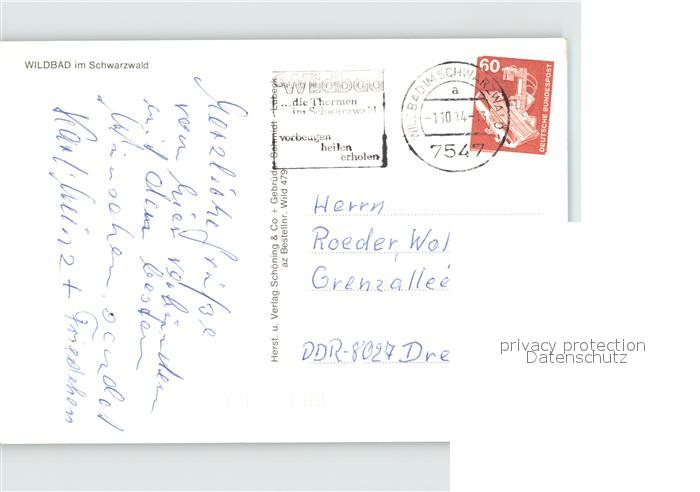 WILDBAD im Schwarzwald
Herzliche Grüße
von hier verbunden
mit den besten
Wünschen, sendet
Karl Heinz + Friedchen
Herst. u. Verlag Schöning & Co + Gebrüder Schmidt - Lübeck
az Bestellnr. Wild 479
Wildbad
...die Thermen
im Schwarzwald
vorbeugen
heilen
erholen
WILDBAD IM SCHWARZWALD
a
-1.10.84-
7547
60
DEUTSCHE BUNDESPOST
Herrn
Roeder, Wol
Grenzallee
DDR-8027 Dre
privacy protection
Datenschutz